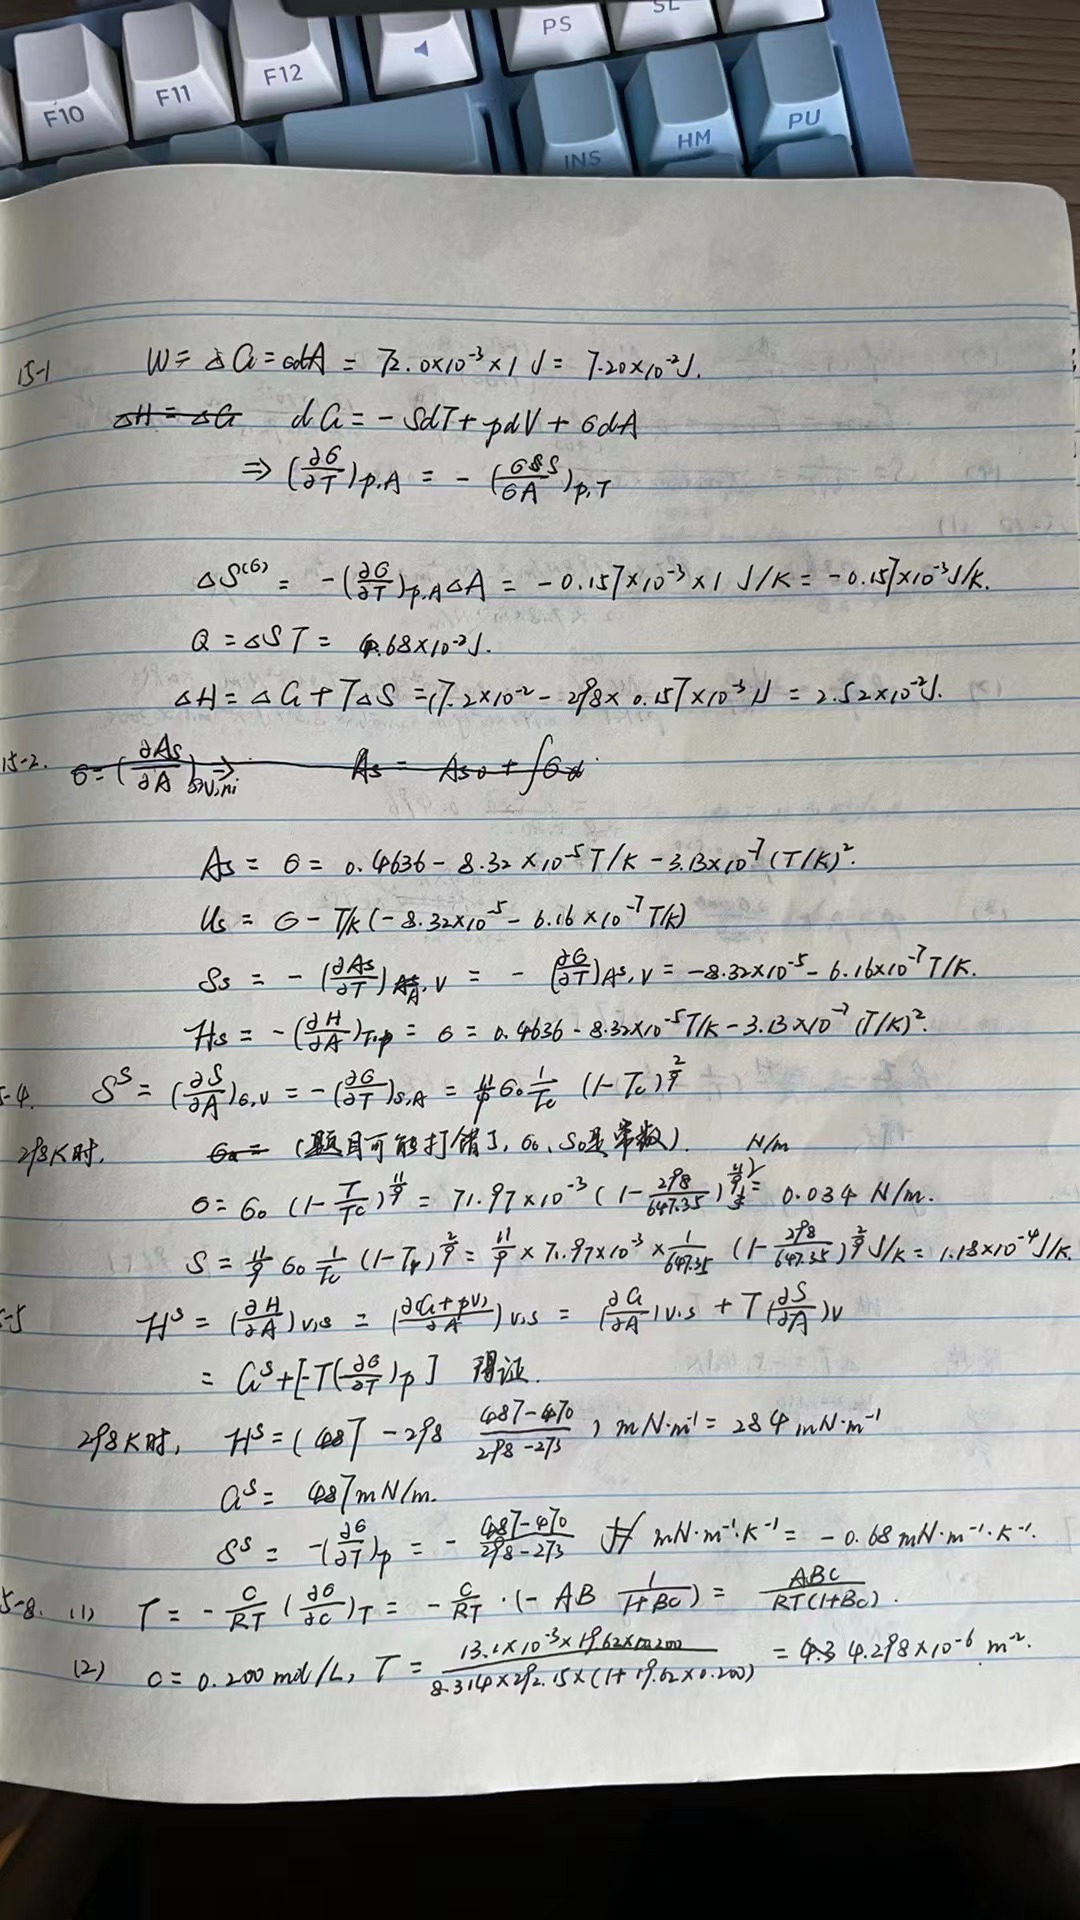 F10 F11 F12 PS SL
INS HM PU
15-1 W = ΔG = σdA = 72.0×10⁻³×1 J = 7.20×10⁻²J.
ΔH = ΔG dG = -SdT + pdV + σdA
⇒ (∂σ/∂T)p.A = -(/σA)p,T
ΔS^(σ) = -(∂σ/∂T)p.A ΔA = -0.157×10⁻³×1 J/K = -0.157×10⁻³J/K.
Q = ΔST = 4.68×10⁻²J.
ΔH = ΔG + TΔS = (7.2×10⁻² - 298×0.157×10⁻³)J = 2.52×10⁻²J.
15-2. σ = (∂As/∂A)s,v,ni ⇒ As = As0 + ∫σd
As = σ = 0.4636 - 8.32×10⁻⁵T/K - 3.13×10⁻⁷(T/K)².
Us = σ - T/K(-8.32×10⁻⁵ - 6.16×10⁻⁷T/K)
Ss = -(∂As/∂T)A,V = -(∂σ/∂T)As,V = -8.32×10⁻⁵ - 6.16×10⁻⁷T/K.
Hs = -(∂H/∂A)T,p = σ = 0.4636 - 8.32×10⁻⁵T/K - 3.13×10⁻⁷(T/K)².
5-4. S^S = (∂S/∂A)σ,V = -(∂σ/∂T)S,A = 11/9 σ₀ 1/Tc (1-Tc)^(2/9)
298K时, (题目可能打错了, σ₀、S₀是常数). N/m
σ = σ₀(1-T/Tc)^(11/9) = 71.97×10⁻³(1-298/647.35)^(11/9) = 0.034 N/m.
S = 11/9 σ₀ 1/Tc (1-Tr)^(2/9) = 11/9 × 71.97×10⁻³ × 1/647.35 (1-298/647.35)^(2/9) J/K = 1.18×10⁻⁴J/K.
5-5 H^S = (∂H/∂A)V,S = (∂(G+pV)/∂A)V,S = (∂G/∂A)V,S + T(∂S/∂A)V
= G^S + [-T(∂σ/∂T)p] 得证.
298K时, H^S = (487 - 298 487-470/298-273) mN·m⁻¹ = 284 mN·m⁻¹
G^S = 487mN/m.
S^S = -(∂σ/∂T)p = - 487-470/298-273 mN·m⁻¹·K⁻¹ = -0.68 mN·m⁻¹·K⁻¹.
5-8. (1) Γ = -c/RT (∂σ/∂c)T = -c/RT · (-AB 1/1+Bc) = ABc/RT(1+Bc).
(2) c = 0.200 mol/L, Γ = 13.1×10⁻³×19.62×0.200/8.314×292.15×(1+19.62×0.200) = 4.3 4.298×10⁻⁶ m⁻².